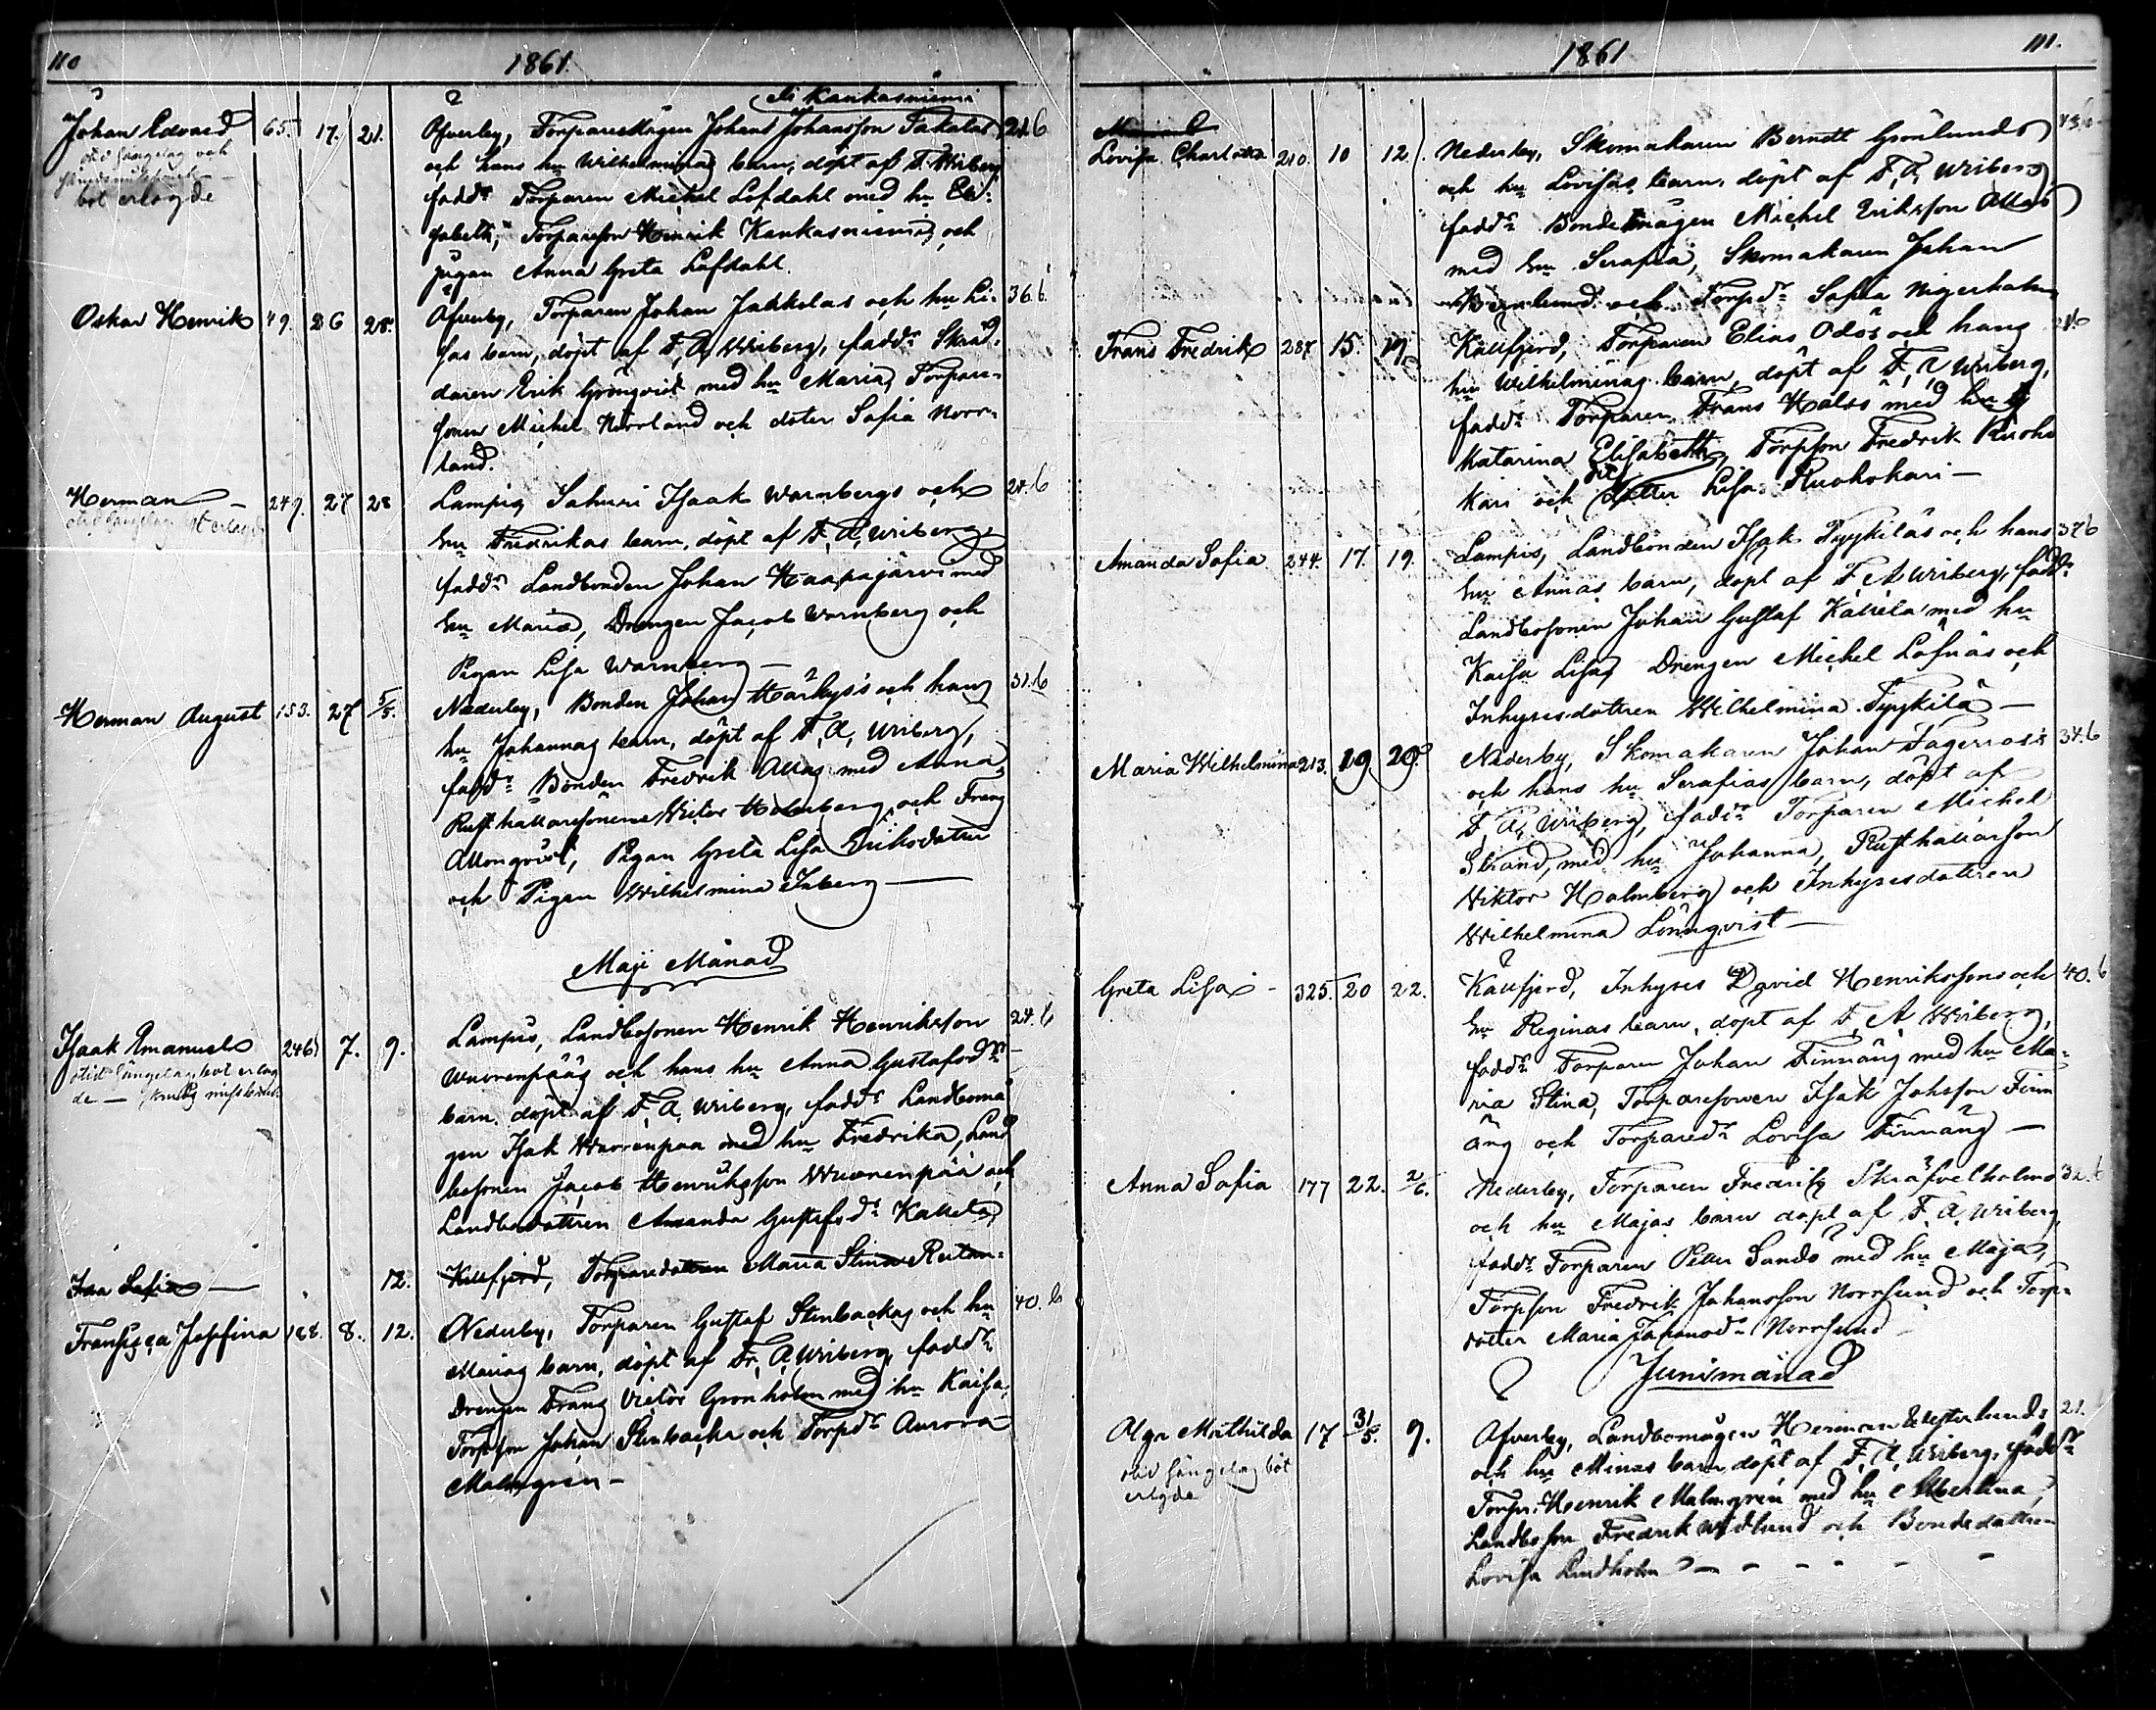 110
1861.
Johan Edvard 65. 17. 21.
bot erlagde
Öfverby, Torparemågen Johans Johansson 24.6
och hans hu Wilhelminas barn, döpt af F. Wriberg
faddr Torparen Michel Löfdahl med hu Eli-
sabeth, Torpareson Henrik Kankasniemi och
pigan Anna Greta Löfdahl.
Oskar Henrik 49. 26 28.
Öfverby, Torparen Johan Jakkolas och hu Li- 36.6.
sas barn, döpt af F. A. Wriberg, faddr Skräd-
daren Erik Grönqvist med hu Maria, Torpare-
sonen Michel Norrland och doter Sofia Norr-
land.
Herman 249. 27 28
Lampis, Isaak Warnbergs och 24.6
hu Fredrikas barn, döpt af F. A. Wriberg
faddr Landbonden Johan Haapajärvi med
hu Maria, Drengen Jacob Warnberg och
Pigan Lisa Warnberg —
Herman August 153. 27 5/5.
Nederby, Bonden Johan Härkys's och hans 31.6
hu Johannas barn, döpt af F. A. Wriberg,
faddr Bonden Fredrik Allas med Anna,
Rusthållaresonen Victor Holmberg och Frans
Pigan Greta Lisa Eriksdotter
och Pigan Wilhelmina Isberg —
Maji Månad
Isaak Emanuel 246 7. 9.
Lampis, Landbosonen Henrik Henriksson 24.6
Wuorenpääs och hans hu Anna Gustafsdrs
barn, döpt af F. A. Wriberg, faddr Landbomå
gen Isak Wuorenpää med hu Fredrika, Land
bosonen Jacob Henriksson Wuorenpää och
Landbodottren Amanda Gustafsdr Kallela
Ida Sofia — 12.
Källfjerd, Torparedottren Maria Stina
Fransisca Josefina 188. 8. 12.
Nederby, Torparen Gustaf Stenbackas och hu 40.6
Marias barn, döpt af Fr. A. Wriberg, faddr
Drengen Frans Victor Grönholm med hu Kaisa,
Torpson Johan Stenbacka och Torpdr Aurora
Malmgren —
1861
111.
Lovisa Charlotta 210. 10 12.
Nederby, Skomakaren Berndt Grönlunds
och hu Lovisas barn, döpt af F. A. Wriberg
faddr Bondemågen Michel Eriksson Allas
med hu Serafia, Skomakaren Johan
och Torpdr Sofia
Frans Fredrik 287 15. 19.
Källfjerd, Torparen Elias Odös och hans
hu Wilhelminas barn, döpt af F. A. Wriberg,
faddr Torparen Frans Halss med hu
Katarina Elisabeth, Torpson Fredrik Ruoho
kari och dotter Lisa Ruohokari —
Amanda Sofia 244. 17. 19.
Lampis, Landbonden Isak Pyykiläs och hans 37.6
hu Annas barn, döpt af F. A. Wriberg, faddr
Landbosonen Johan Gustaf Kallela med hu
Kaisa Lisa, Drengen Michel Löfnäs och
Inhysesdottren Wilhelmina Pyykilä —
Maria Wilhelmina 213. 19. 20.
Nederby, Skomakaren Johan Fagerros's 34.6
och hans hu Serafias barn, döpt af
F. A. Wriberg, faddr Torparen Michel
Strand, med hu Johanna, Rusthållarson
Viktor Holmberg och Inhysesdottren
Wilhelmina Lönnqvist —
Greta Lisa 325. 20 22.
Källfjerd, Inhyses David Henrikssons och 40.6
hu Reginas barn, döpt af F. A. Wriberg,
faddr Torparen Johan Finnäng med hu Ma-
ria Stina, Torparesonen Isak Johsson Finn
äng och Torparedr Lovisa Finnäng —
Anna Sofia 177 22. 2/6.
Nederby, Torparen Fredrik Skräfvelholms 32.6
och hu Majas barn döpt af F. A. Wriberg
faddr Torparen Petter Sandö med hu Maja,
Torpson Fredrik Johansson Norrsund och Torp-
dotter Maria Johansdr Norrsund
Junimånad
Olga Mathilda 17 31/5. 9.
bot
erlagde
Öfverby, Landbomågen Herman Westerlunds 21.
och hu Minas barn, döpt af F. A. Wriberg, faddr
Torpr. Henrik Malmgren med hu Albertina,
Landboson Fredrik Widlund och Bondedottren
Lovisa Lindholm —